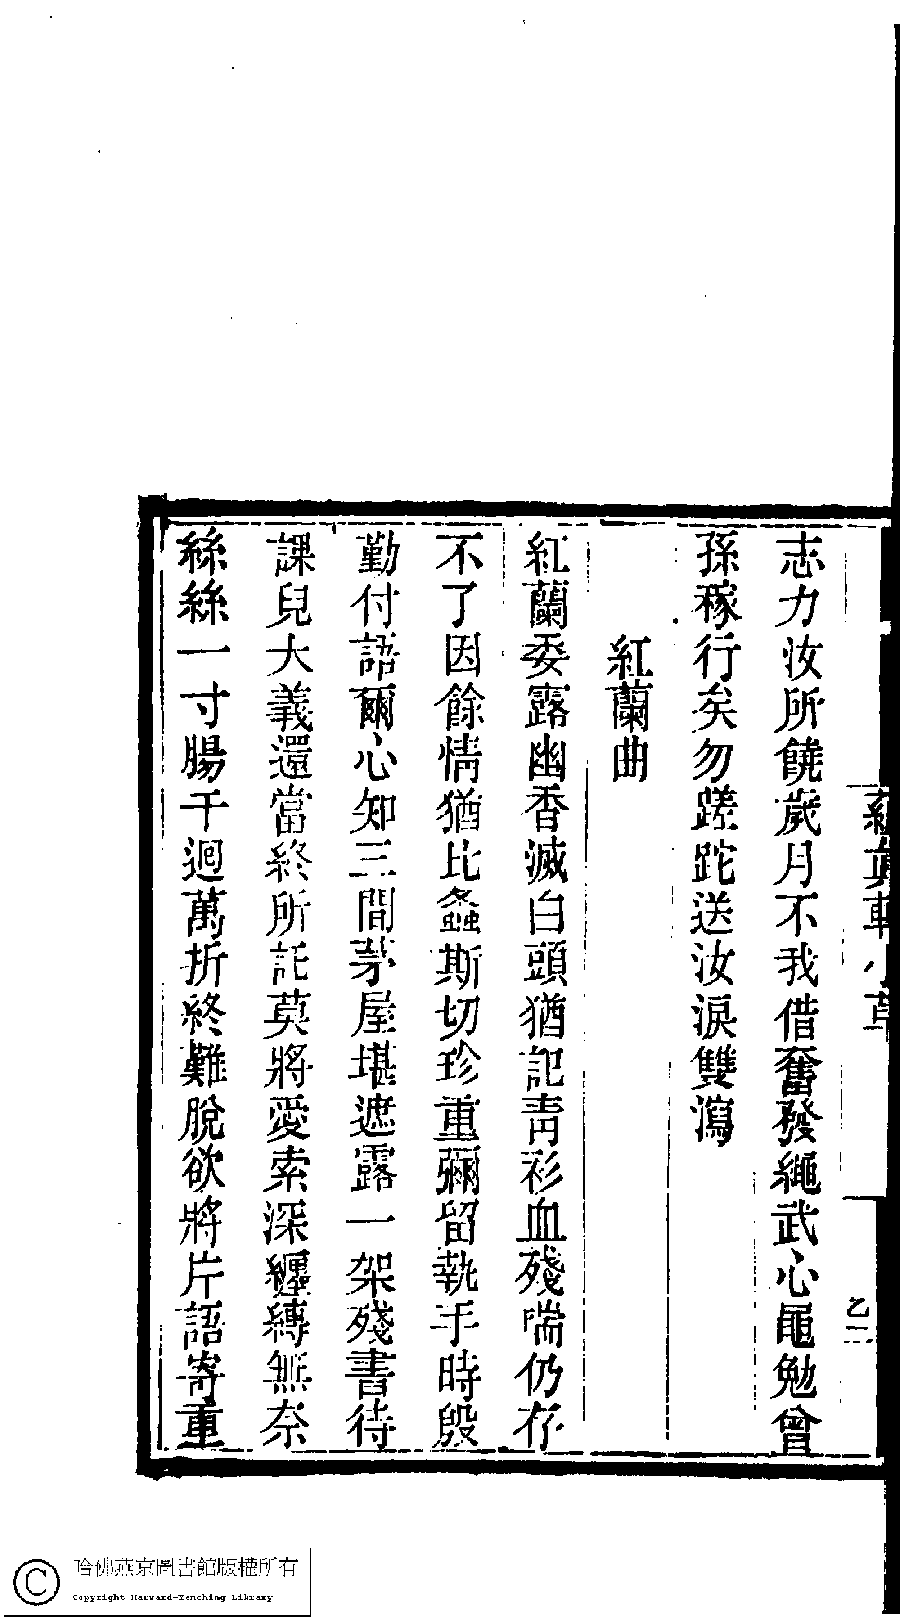 志力汝所饒歲月不我借奮發繩武心黽勉曾
孫稼行矣勿蹉跎送汝淚雙瀉
紅蘭曲
紅蘭委露幽香滅白頭猶記靑衫血殘喘仍存
不了因餘情猶比螽斯切珍重彌留執手時殷
勤付語爾心知三間茅屋堪遮露一架殘書待
課兒大義還當終所託莫將愛索深纏縛無奈
絲絲一寸腸千迴萬折終難脫欲將片語寄重
哈佛燕京圖書館版權所有
Copyright Harvard-Yenching Library